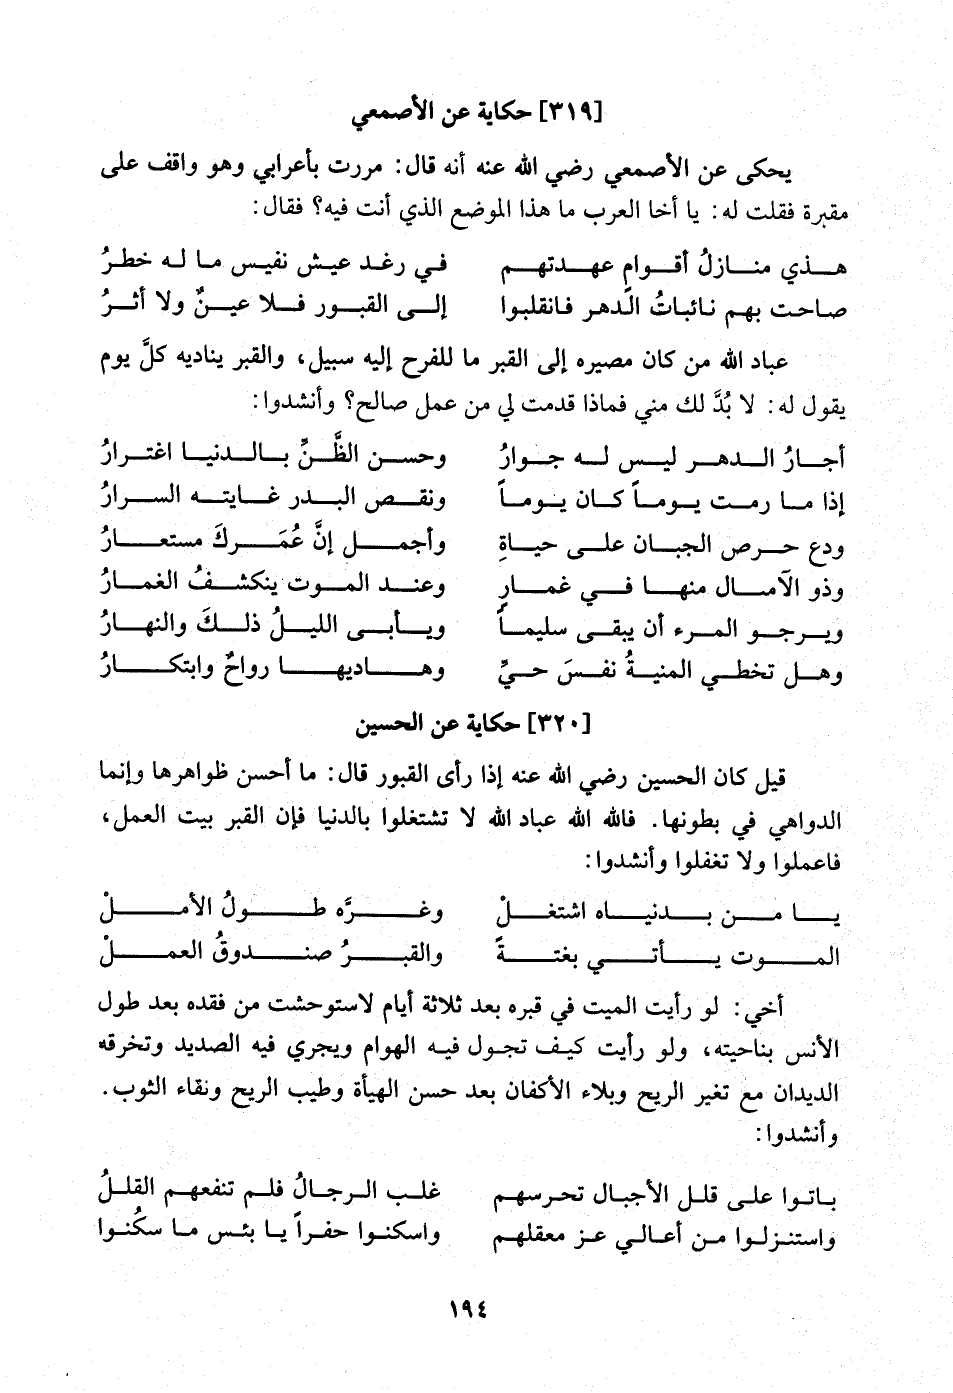 [٣١٩] حكاية عن الأصمعي
يحكى عن الأصمعي رضي الله عنه أنه قال: مررت بأعرابي وهو واقف على
مقبرة فقلت له: يا أخا العرب ما هذا الموضع الذي أنت فيه؟ فقال:
هـذي منـازلُ أقـوام عهـدتهـم في رغـد عيـش نفيـس مـا لـه خطـرُ
صاحـت بهـم نـائبـاتُ الدهـر فـانقلبـوا إلـى القبـور فـلا عيـنٌ ولا أثـرُ
عباد الله من كان مصيره إلى القبر ما للفرح إليه سبيل، والقبر يناديه كلَّ يوم
يقول له: لا بُدَّ لك مني فماذا قدمت لي من عمل صالح؟ وأنشدوا:
أجـارُ الـدهـر ليـس لـه جـوارُ وحسـن الظَّـنِّ بـالـدنيـا اغتـرارُ
إذا مـا رمـت يـومـاً كـان يـومـاً ونقـص البـدر غـايتـه السـرارُ
ودع حـرص الجبـان علـى حيـاةِ وأجمـل إنَّ عُمَـركَ مستعـارُ
وذو الآمـال منهـا فـي غمـارِ وعنـد المـوت ينكشـفُ الغمـارُ
ويـرجـو المـرء أن يبقـى سليمـاً ويـأبـى الليـلُ ذلـكَ والنهـارُ
وهـل تخطـي المنيـةُ نفـسَ حـيٍّ وهـاديهـا رواحٌ وابتكـارُ
[٣٢٠] حكاية عن الحسين
قيل كان الحسين رضي الله عنه إذا رأى القبور قال: ما أحسن ظواهرها وإنما
الدواهي في بطونها. فالله الله عباد الله لا تشتغلوا بالدنيا فإن القبر بيت العمل،
فاعملوا ولا تغفلوا وأنشدوا:
يـا مـن بـدنيـاه اشتغـلْ وغـرَّه طـولُ الأمـلْ
المـوت يـأتـي بغتـةً والقبـرُ صنـدوقُ العمـلْ
أخي: لو رأيت الميت في قبره بعد ثلاثة أيام لاستوحشت من فقده بعد طول
الأنس بناحيته، ولو رأيت كيف تجول فيه الهوام ويجري فيه الصديد وتخرقه
الديدان مع تغير الريح وبلاء الأكفان بعد حسن الهيأة وطيب الريح ونقاء الثوب.
وأنشدوا:
بـاتـوا علـى قلـل الأجبـال تحـرسهـم غلـب الـرجـالُ فلـم تنفعهـم القلـلُ
واستنـزلـوا مـن أعـالـي عـز معقلهـم واسكنـوا حفـراً يـا بئـس مـا سكُنـوا
١٩٤